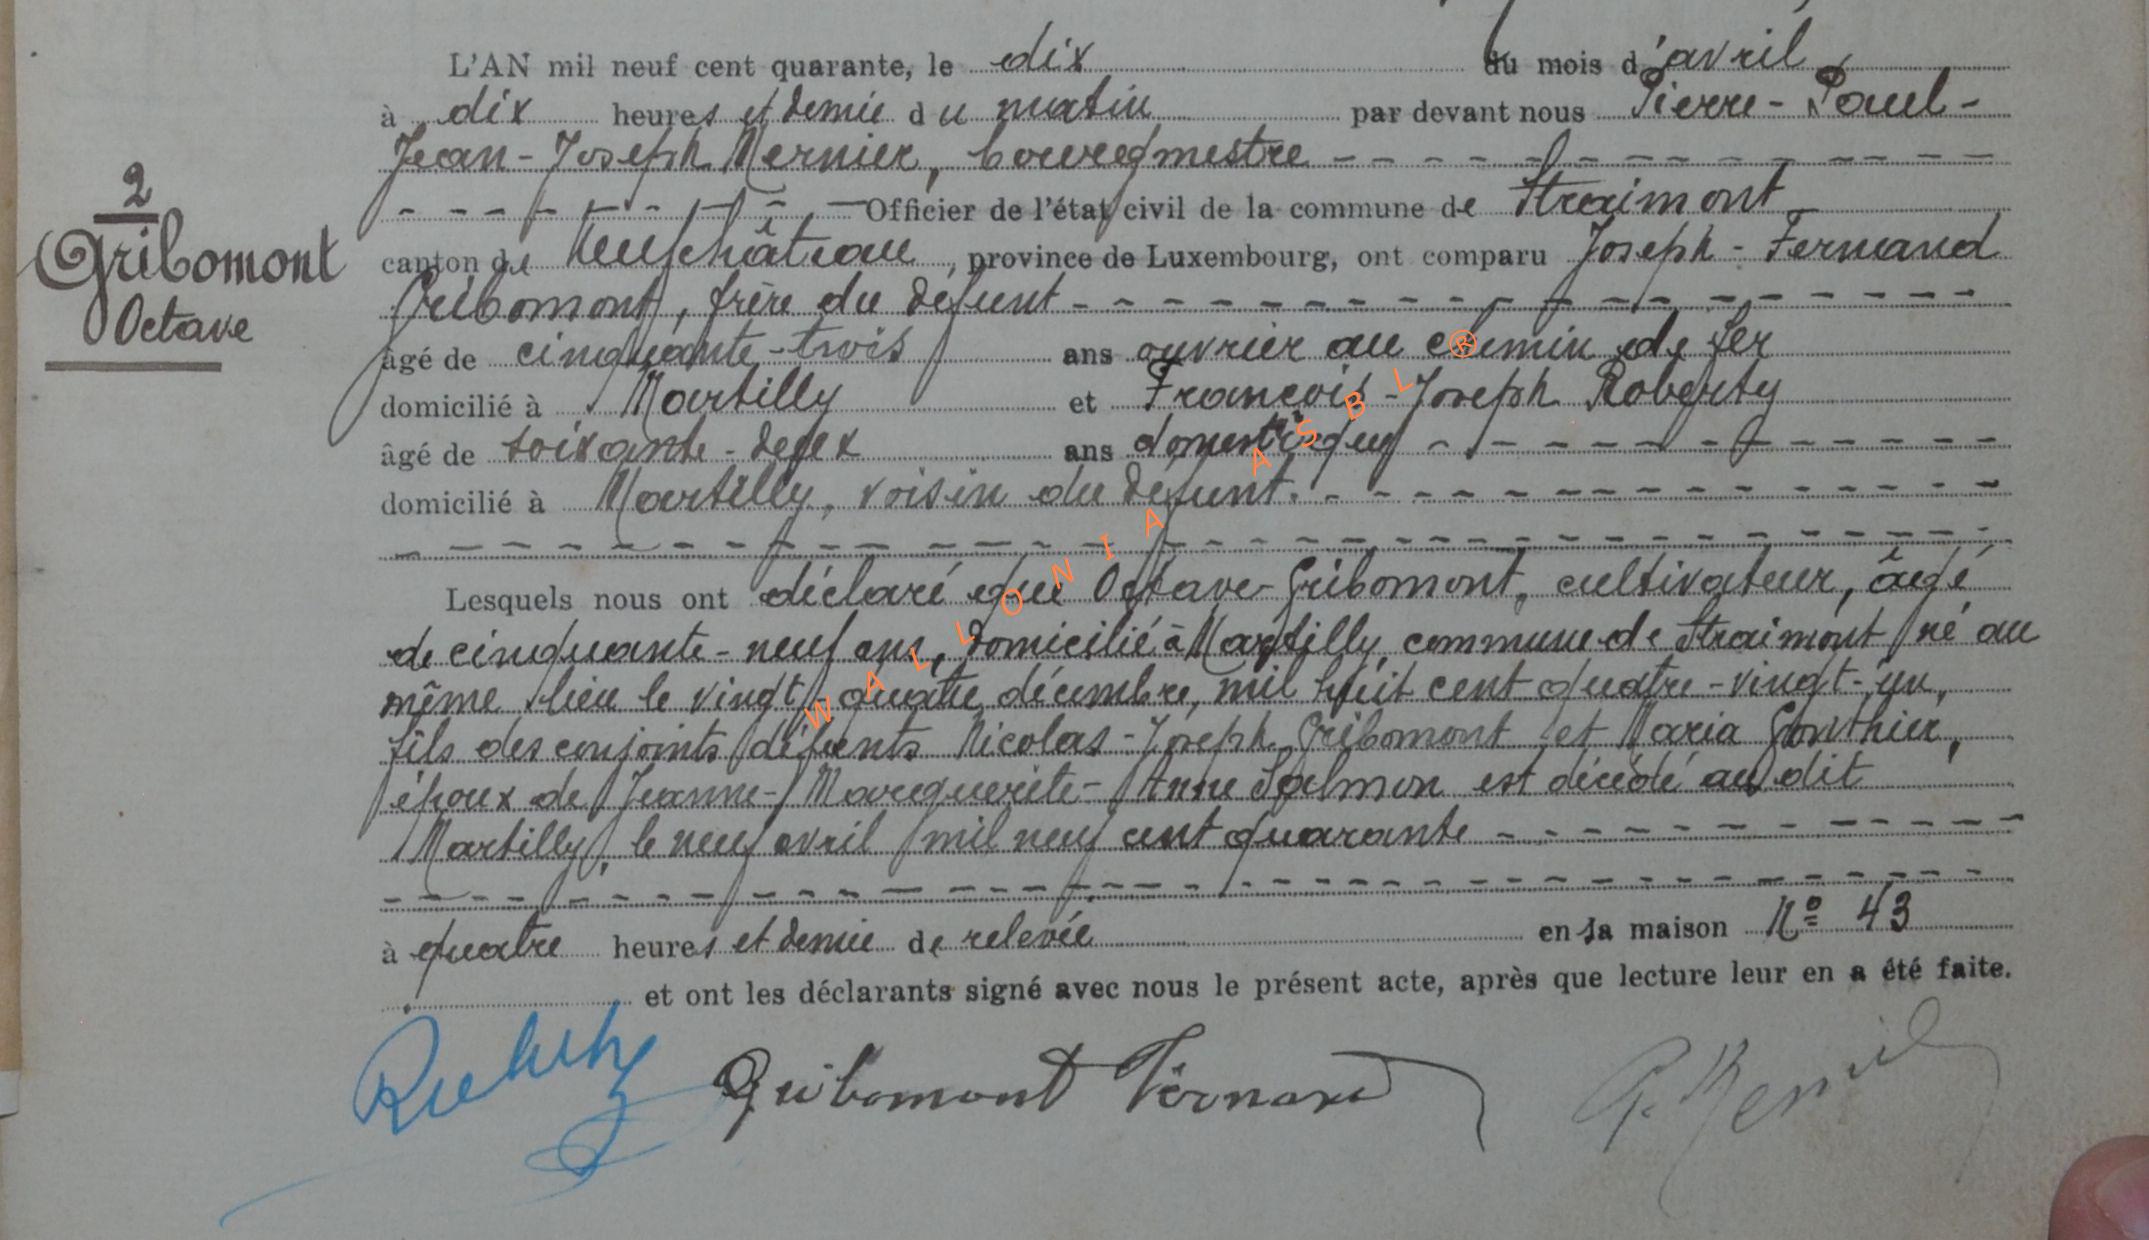 L'AN mil neuf cent quarante, le dix du mois d'avril
à dix heures et demie du matin par devant nous Pierre-Paul-
Jean-Joseph Mernier, bourgmestre
2
Officier de l'état civil de la commune de Straimont
Gribomont
canton de Neufchâteau, province de Luxembourg, ont comparu Joseph-Fernand
Gribomont, frère du défunt
Octave
âgé de cinquante-trois ans ouvrier au chemin de fer
domicilié à Martilly et François-Joseph Roberty
âgé de soixante-deux ans domestique
domicilié à Martilly, voisin du défunt.
Lesquels nous ont déclaré que Octave Gribomont, cultivateur, âgé
de cinquante-neuf ans, domicilié à Martilly commune de Straimont né au
même lieu le vingt-quatre décembre, mil huit cent quatre-vingt-un,
fils des conjoints défunts Nicolas-Joseph Gribomont et Maria Gonthier,
époux de Jeanne-Marguerite-Anne Salmon est décédé au dit
Martilly, le neuf avril mil neuf cent quarante
à quatre heures et demie de relevée en sa maison N° 43
et ont les déclarants signé avec nous le présent acte, après que lecture leur en a été faite.
Gribomont Fernand
WALLONIA ASBL ®